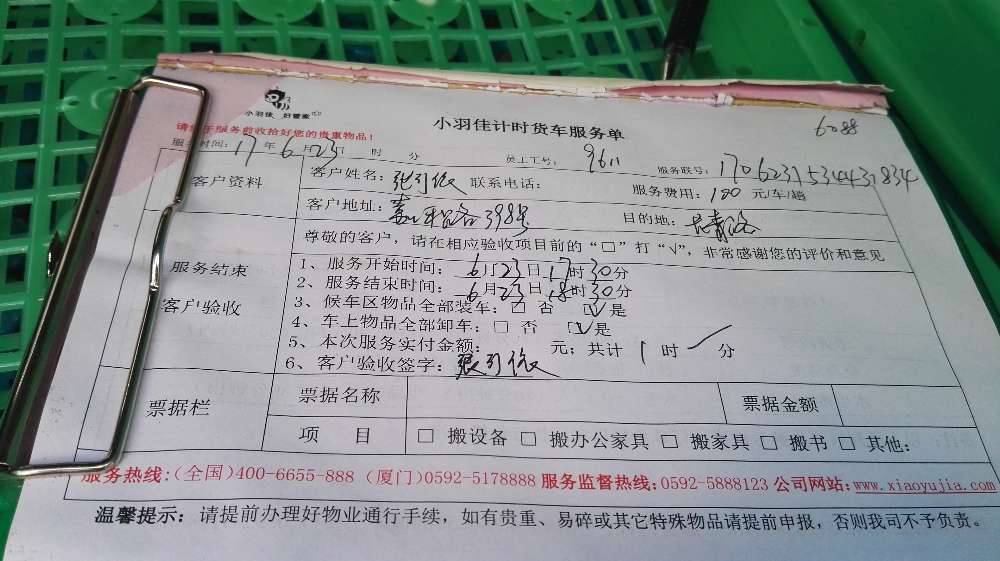 小羽佳 好管家
小羽佳计时货车服务单
6088
请您于服务前收拾好您的贵重物品！
服务时间：17年6月23日 时 分 员工工号：9611 服务联号：1706231534431834
客户资料
客户姓名：张引弟 联系电话： 服务费用：180 元/车/趟
客户地址： 398号 目的地：长青路
服务结束
客户验收
尊敬的客户，请在相应验收项目前的“□”打“√”，非常感谢您的评价和意见
1、服务开始时间：6月23日17时30分
2、服务结束时间：6月23日18时30分
3、候车区物品全部装车：□ 否 ☑是
4、车上物品全部卸车：□ 否 ☑是
5、本次服务实付金额： 元；共计 1 时 分
6、客户验收签字：张引弟
票据栏
票据名称 票据金额
项 目 □ 搬设备 □ 搬办公家具 □ 搬家具 □ 搬书 □ 其他：
服务热线：(全国)400-6655-888 (厦门)0592-5178888 服务监督热线：0592-5888123 公司网站：www.xiaoyujia.com
温馨提示：请提前办理好物业通行手续，如有贵重、易碎或其它特殊物品请提前申报，否则我司不予负责。